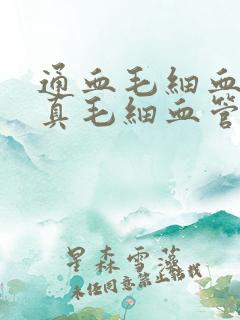 通血毛細血
真毛細血管
星森雪藻
未经同意禁止转载